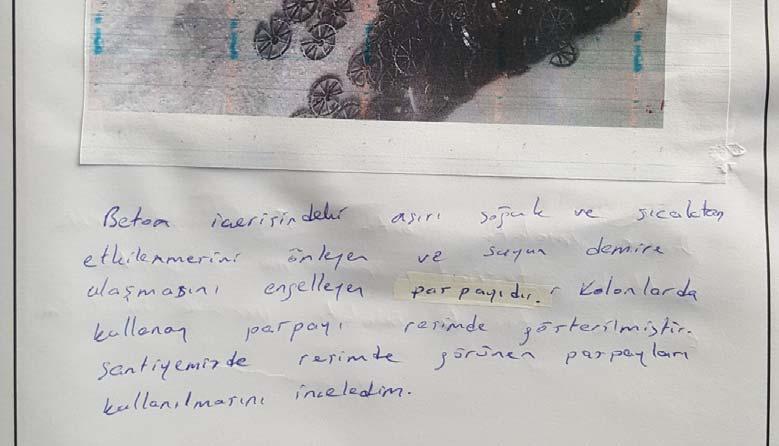 Beton içerisindeki aşırı soğuk ve sıcaktan
etkilenmerini önleyen ve suyun demire
ulaşmasını engelleyen parpayıdır. Kolonlarda
kullanan parpayı resimde gösterilmiştir.
Şantiyemizde resimde görünen parpayları
kullanılmasını inceledim.